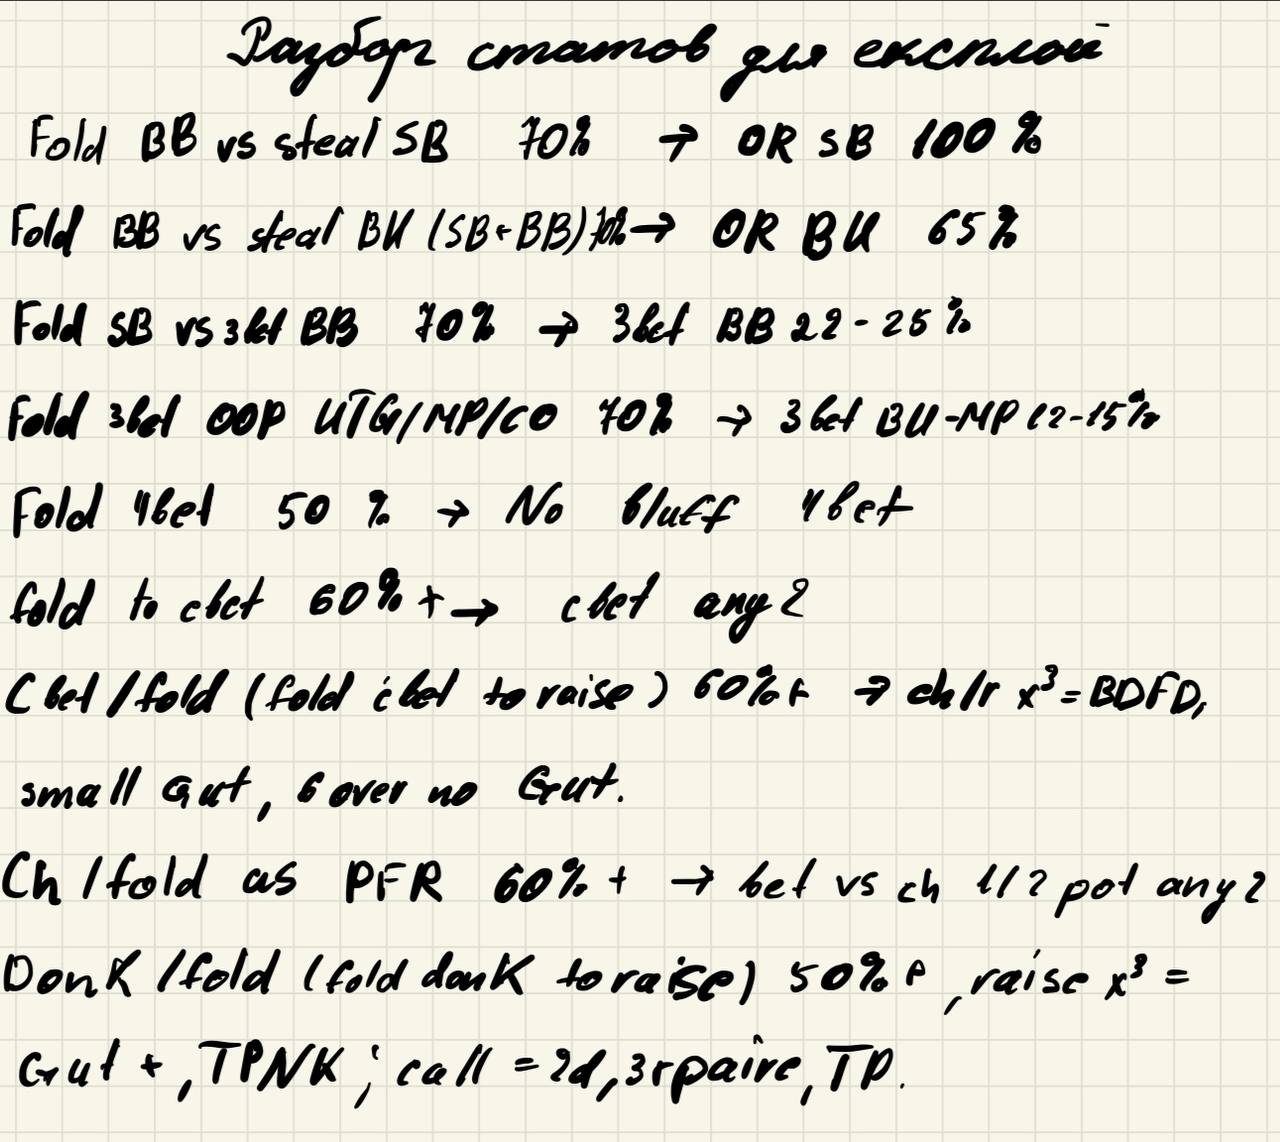 Разбор статов для експлой
Fold BB vs steal SB 70% → OR SB 100%
Fold BB vs steal BU (SB+BB) 70% → OR BU 65%
Fold SB vs 3bet BB 70% → 3bet BB 22-25%
Fold 3bet OOP UTG/MP/CO 70% → 3bet BU-MP 12-15%
Fold 4bet 50% → No bluff 4bet
fold to cbet 60%+ → cbet any 2
Cbet/fold (fold cbet to raise) 60%+ → ch/r x³ = BDFD,
small Gut, 6 over no Gut.
Ch/fold as PFR 60%+ → bet vs ch 1/2 pot any 2
Donk/fold (fold donk to raise) 50% , raise x³ =
Gut+, TPNK; call = 2d, 3rpaire, TP.